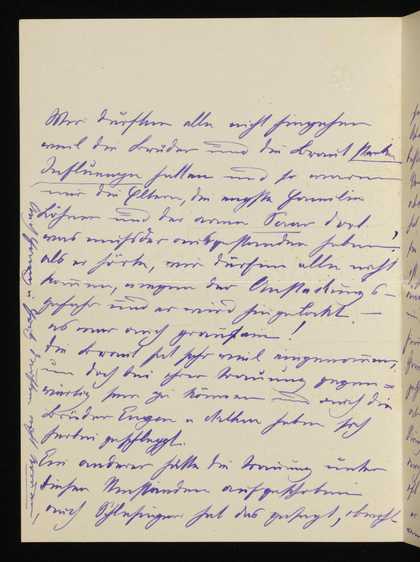 Wir durften alle nicht hingehen
weil die Brüder und die Braut starke
Influenza hatten und so waren
nur die Eltern, die engste Familie
Löhner und der arme dort
was muss der ausgestanden haben!
als er hörte, wir dürfen alle nicht
kommen, wegen der Ansteckungs-
gefahr und er wird hingelockt. –
es war auch grausam!
Die Braut hat sehr viel eingenommen,
um doch bei ihrer Trauung gegen-
wärtig sein zu können – auch die
Brüder Eugen u haben sich
herbei geschleppt.
Ein anderer hätte die Trauung unter
diesen Umständen aufgeschoben
auch Schlesinger hat das gesagt,